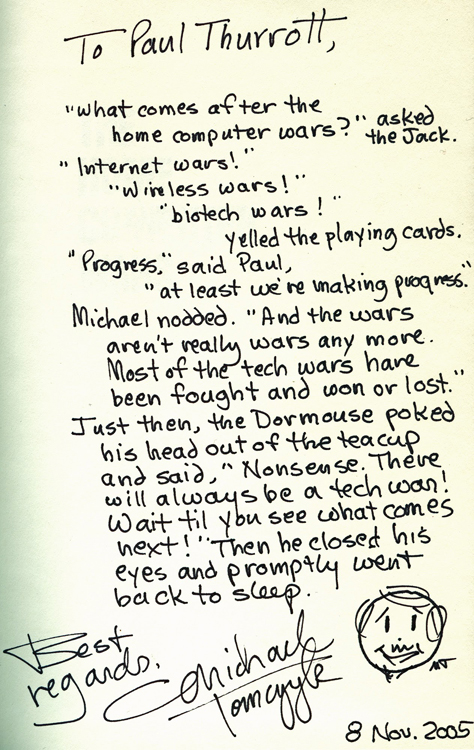 To Paul Thurrott,
"what comes after the
home computer wars?" asked
the Jack.
"Internet wars!"
"Wireless wars!"
"biotech wars!"
yelled the playing cards.
"Progress," said Paul,
"at least we're making progress."
Michael nodded. "And the wars
aren't really wars any more.
Most of the tech wars have
been fought and won or lost."
Just then, the Dormouse poked
his head out of the teacup
and said, "Nonsense. There
will always be a tech war!
Wait til you see what comes
next!" Then he closed his
eyes and promptly went
back to sleep.
Best
regards,
Michael
Tomczyk
MT
8 Nov. 2005